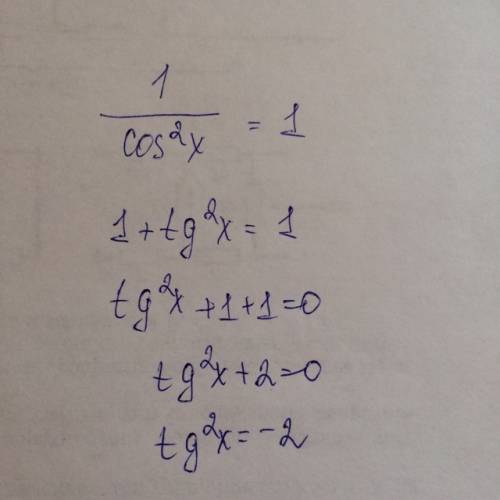 1
cos²x = 1
1 + tg²x = 1
tg²x + 1 + 1 = 0
tg²x + 2 = 0
tg²x = -2